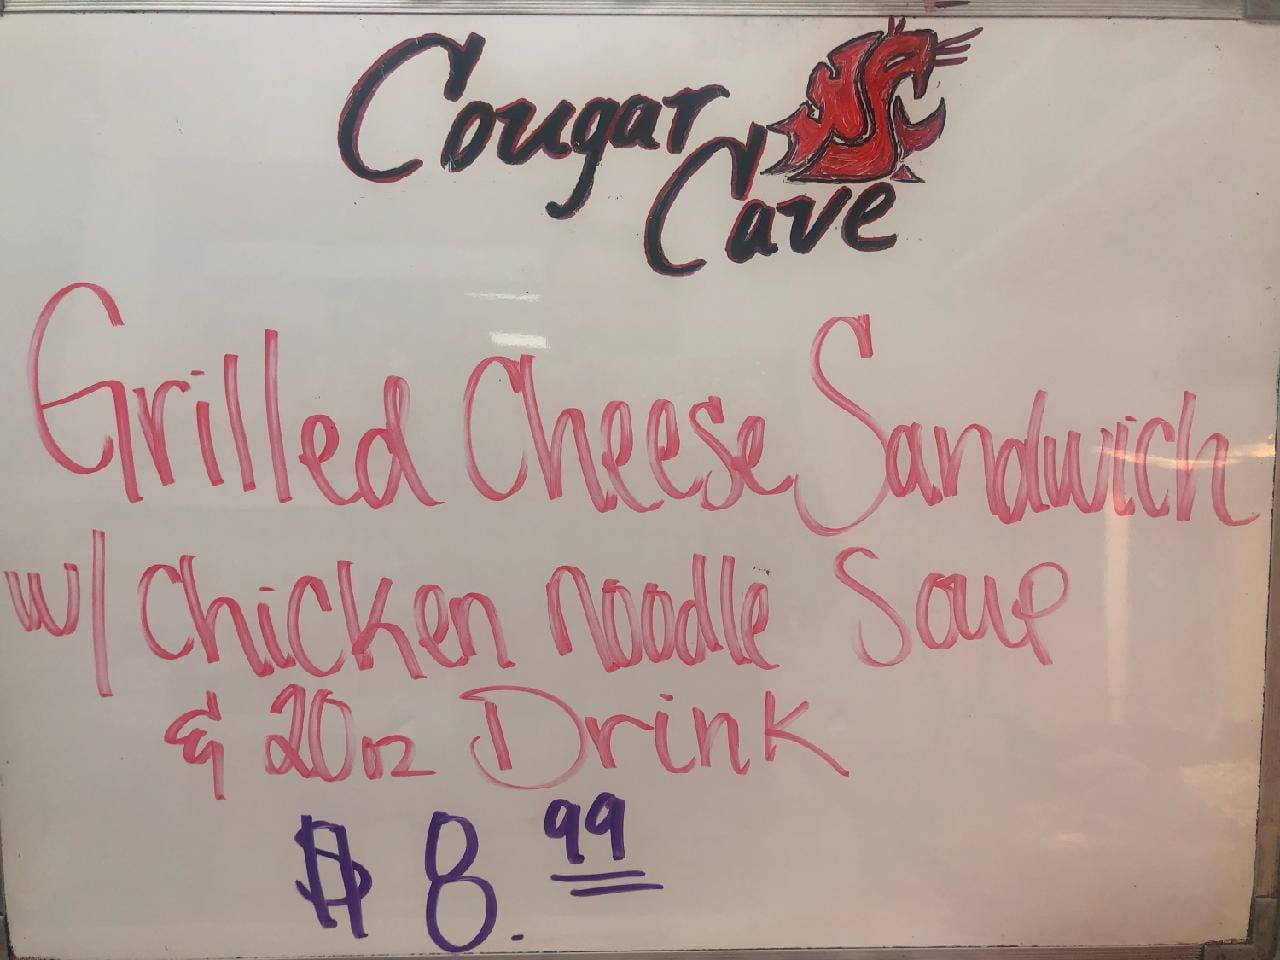 Cougar
Cave
Grilled Cheese Sandwich
w/ Chicken Noodle Soup
& 20oz Drink
$8.99